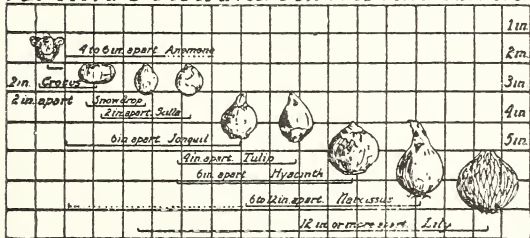 1in.
4 to 6 in. apart Anemone 2in.
2in. Crocus 3in.
2 in. apart Snowdrop 4in.
2in. apart. Scilla
6in apart Jonquil 5in.
4in. apart. Tulip
6in. apart Hyacinth
6 to 12in. apart. Narcissus
12 in. or more apart. Lily